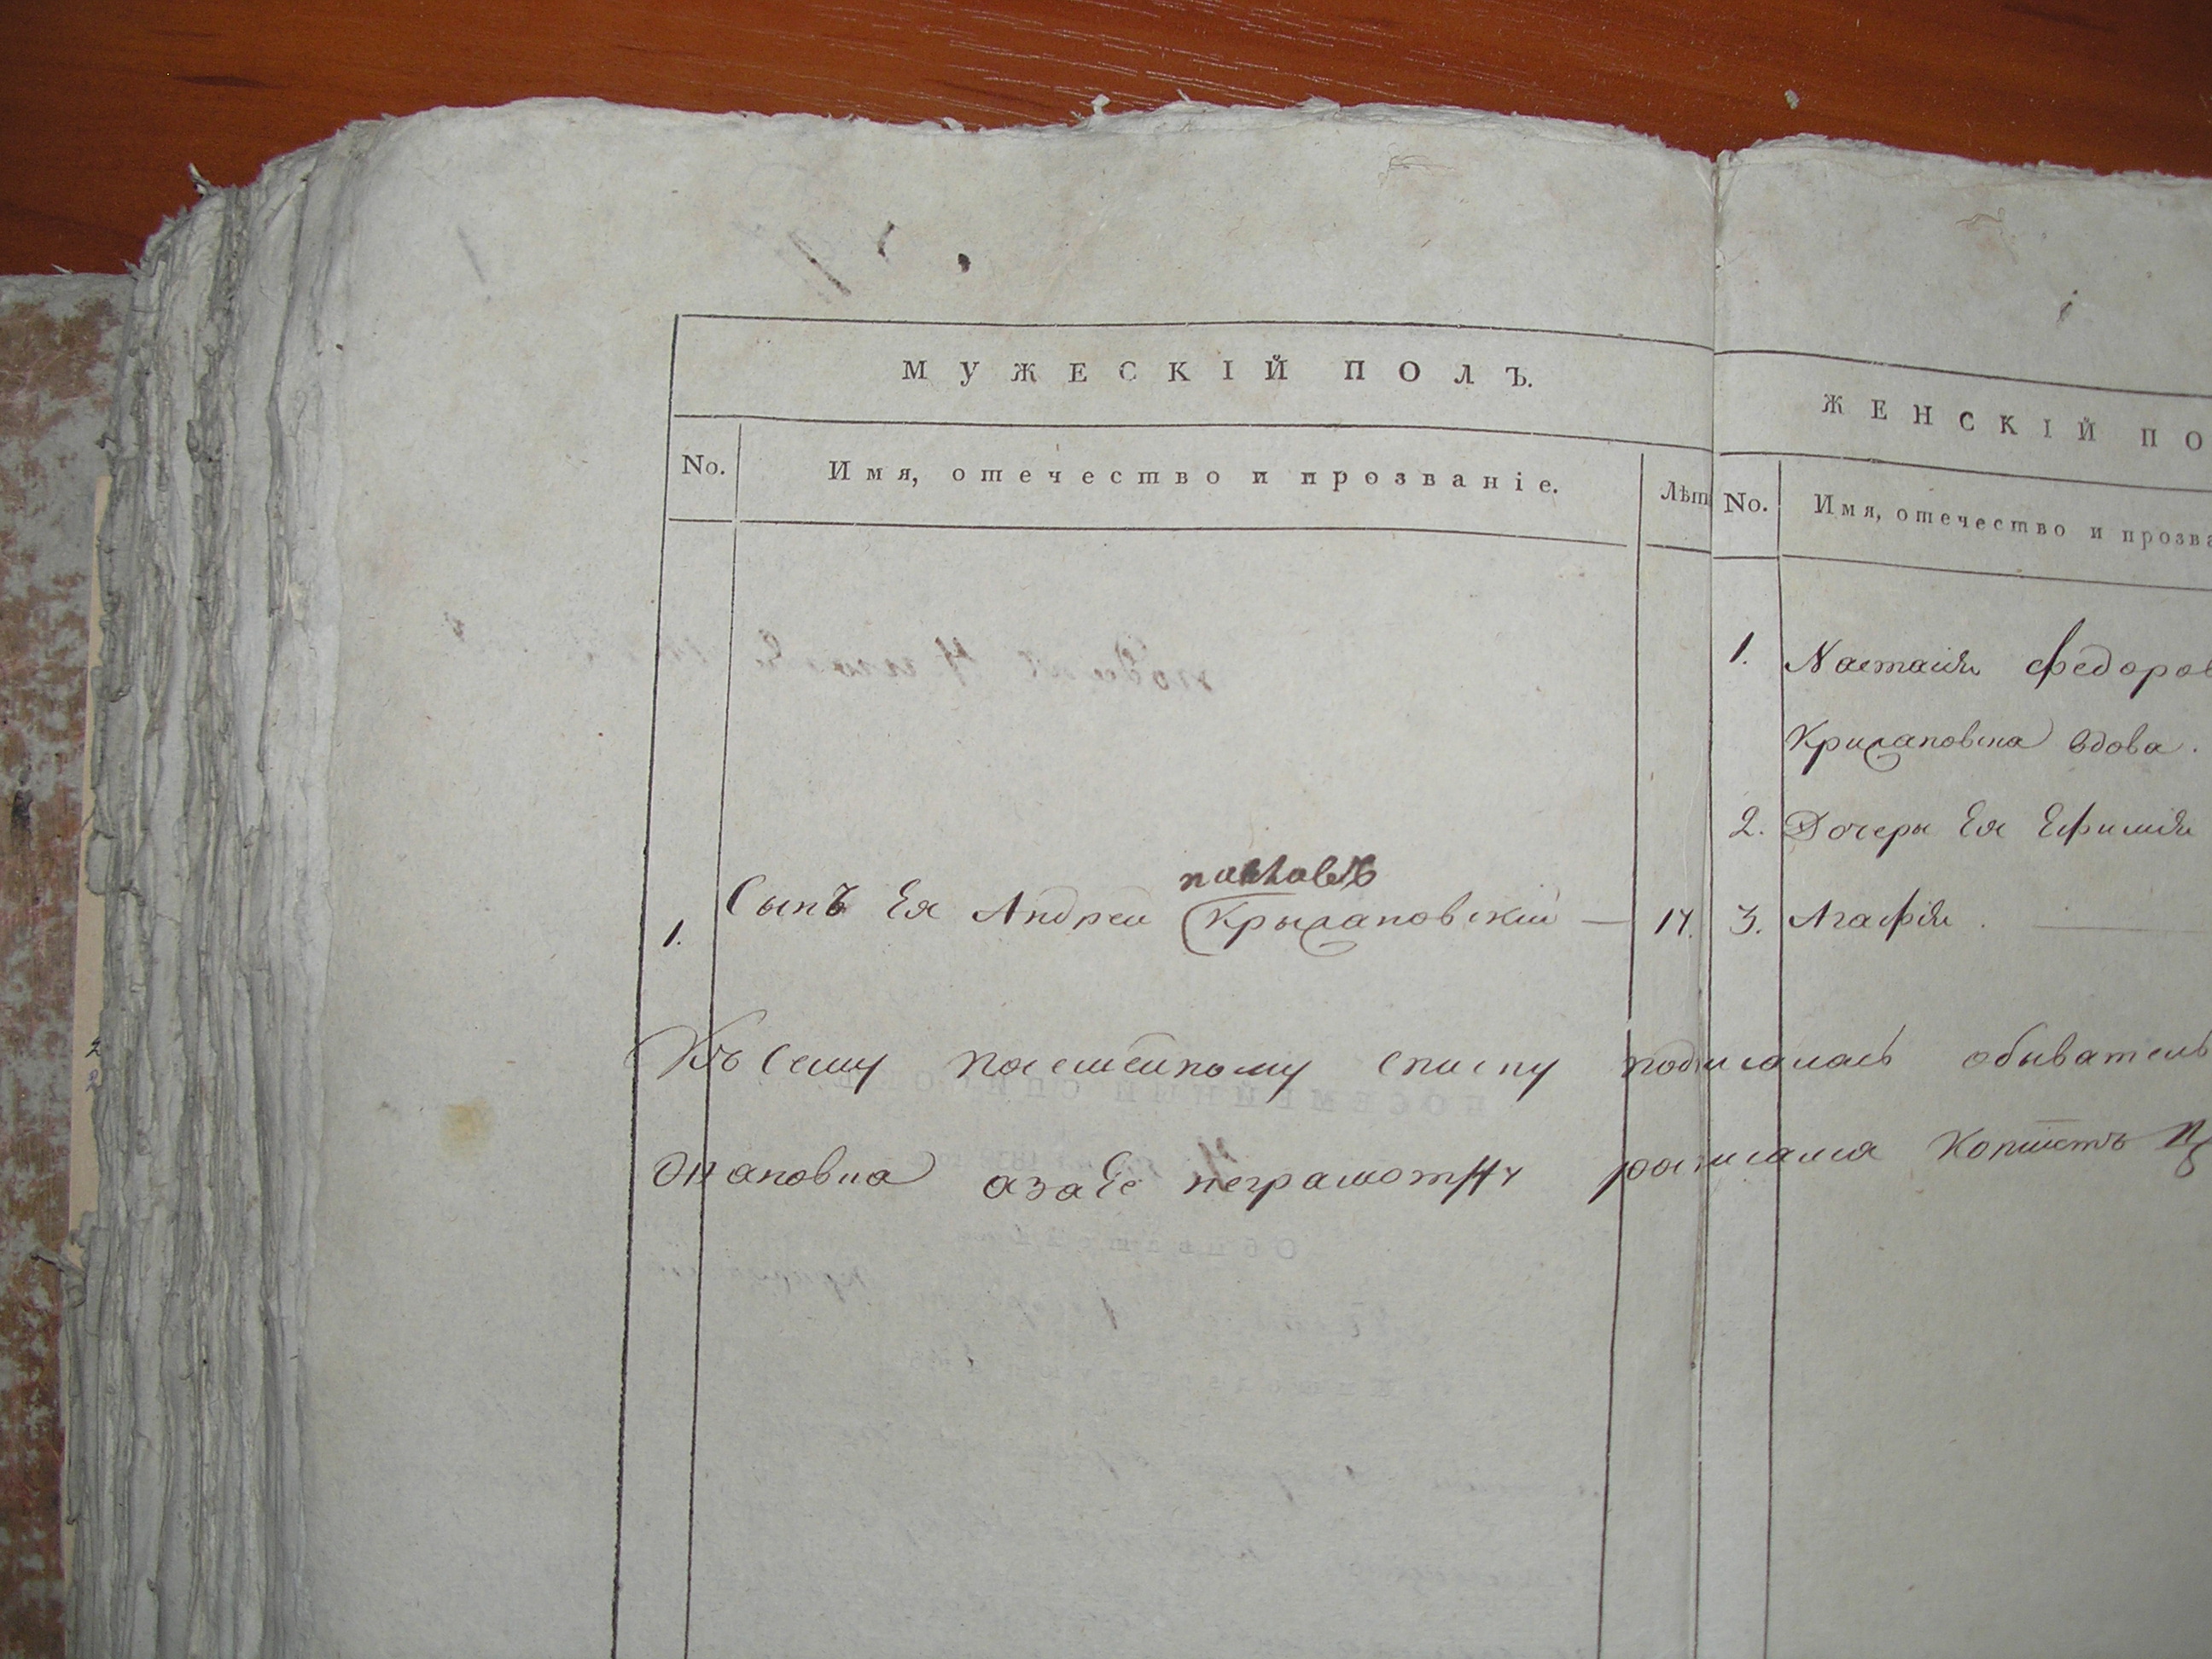 МУЖЕСКІЙ ПОЛЪ.
No. Имя, отечество и прозваніе. Лѣт
павловъ
1. Сынъ Ея Андрей Крыжановскій — 17.
ЖЕНСКІЙ ПО
No. Имя, отечество и прозва
1. Настасія Федоров
Крижановна вдова.
2. Дочеры Ея Ефимія
3. Агафія.
Къ Сему посемейному списку подписалась обыватель
ановна азаЕе неграмотну росписался Копіистъ